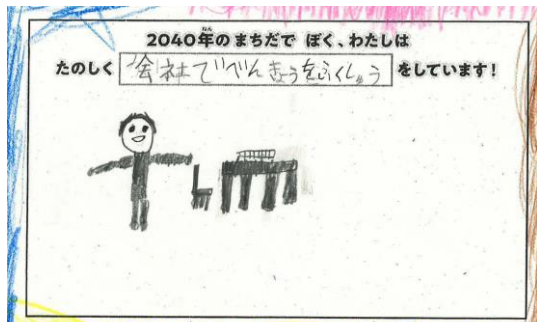 2040年のまちだで ぼく、わたしは
たのしく 会社でべんきょうをふくしゅう をしています!